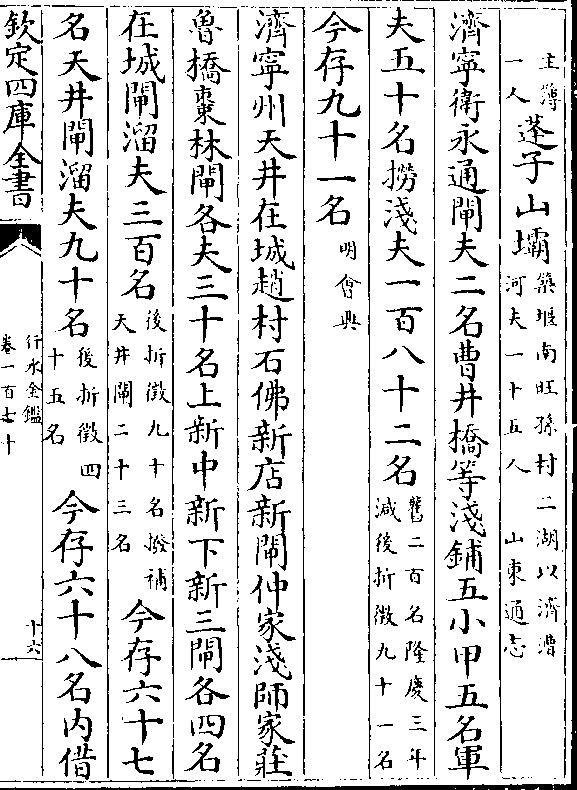 主簿一人蓬子山壩築堰南旺孫村二湖以濟漕河夫一十五人山東通志
濟寧衛永通閘夫二名曹井橋等淺鋪五小甲五名軍
夫五十名撈淺夫一百八十二名舊二百名隆慶三年減後折徵九十一名
今存九十一名明會典
濟寧州天井在城趙村石佛新店新閘仲家淺師家莊
魯橋棗林閘各夫三十名上新中新下新三閘各四名
在城閘溜夫三百名後折徵九十名撥補天井閘二十三名今存六十七
名天井閘溜夫九十名後折徵四十五名今存六十八名内借
欽定四庫全書
行水金鑑
卷一百七十
十六